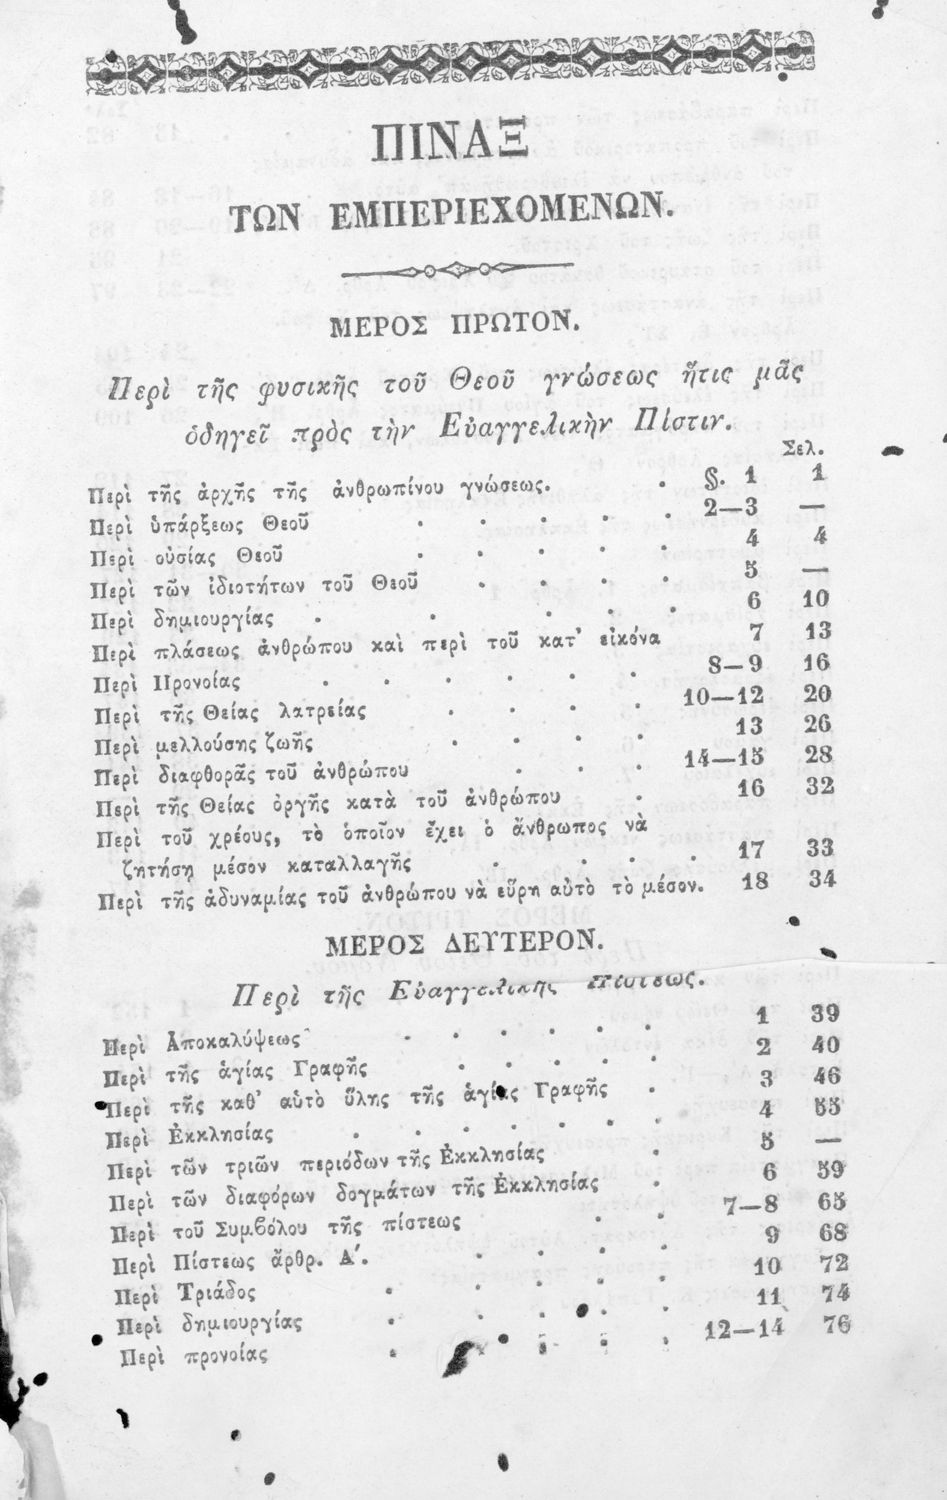 ΠΙΝΑΞ
ΤΩΝ ΕΜΠΕΡΙΕΧΟΜΕΝΩΝ.
ΜΕΡΟΣ ΠΡΩΤΟΝ.
Περὶ τῆς φυσικῆς τοῦ Θεοῦ γνώσεως ἥτις μᾶς
ὁδηγεῖ πρὸς τὴν Εὐαγγελικὴν Πίστιν.
Σελ.
Περὶ τῆς ἀρχῆς τῆς ἀνθρωπίνου γνώσεως. . §. 1 1
Περὶ ὑπάρξεως Θεοῦ . . . . . 2—3 —
Περὶ οὐσίας Θεοῦ . . . . . 4 4
Περὶ τῶν ἰδιοτήτων τοῦ Θεοῦ . . . . 5 —
Περὶ δημιουργίας . . . . . . . 6 10
Περὶ πλάσεως ἀνθρώπου καὶ περὶ τοῦ κατ’ εἰκόνα 7 13
Περὶ Προνοίας . . . . . . 8—9 16
Περὶ τῆς Θείας λατρείας . . . . 10—12 20
Περὶ μελλούσης ζωῆς . . . . 13 26
Περὶ διαφθορᾶς τοῦ ἀνθρώπου . . . 14—15 28
Περὶ τῆς Θείας ὀργῆς κατὰ τοῦ ἀνθρώπου . 16 32
Περὶ τοῦ χρέους, τὸ ὁποῖον ἔχει ὁ ἄνθρωπος νὰ
ζητήσῃ μέσον καταλλαγῆς . . . . 17 33
Περὶ τῆς ἀδυναμίας τοῦ ἀνθρώπου νὰ εὕρῃ αὐτὸ τὸ μέσον. 18 34
ΜΕΡΟΣ ΔΕΥΤΕΡΟΝ.
Περὶ τῆς Εὐαγγελικῆς Πίστεως.
Περὶ Ἀποκαλύψεως . . . . . 1 39
Περὶ τῆς ἁγίας Γραφῆς . . . . 2 40
Περὶ τῆς καθ’ αὑτὸ ὕλης τῆς ἁγίας Γραφῆς . 3 46
Περὶ Ἐκκλησίας . . . . . . 4 55
Περὶ τῶν τριῶν περιόδων τῆς Ἐκκλησίας . 5 —
Περὶ τῶν διαφόρων δογμάτων τῆς Ἐκκλησίας . 6 59
Περὶ τοῦ Συμβόλου τῆς πίστεως . . 7—8 65
Περὶ Πίστεως ἄρθρ. Α΄. . . . . 9 68
Περὶ Τριάδος . . . . . 10 72
Περὶ δημιουργίας . . . . . 11 74
Περὶ προνοίας . . . . . 12—14 76